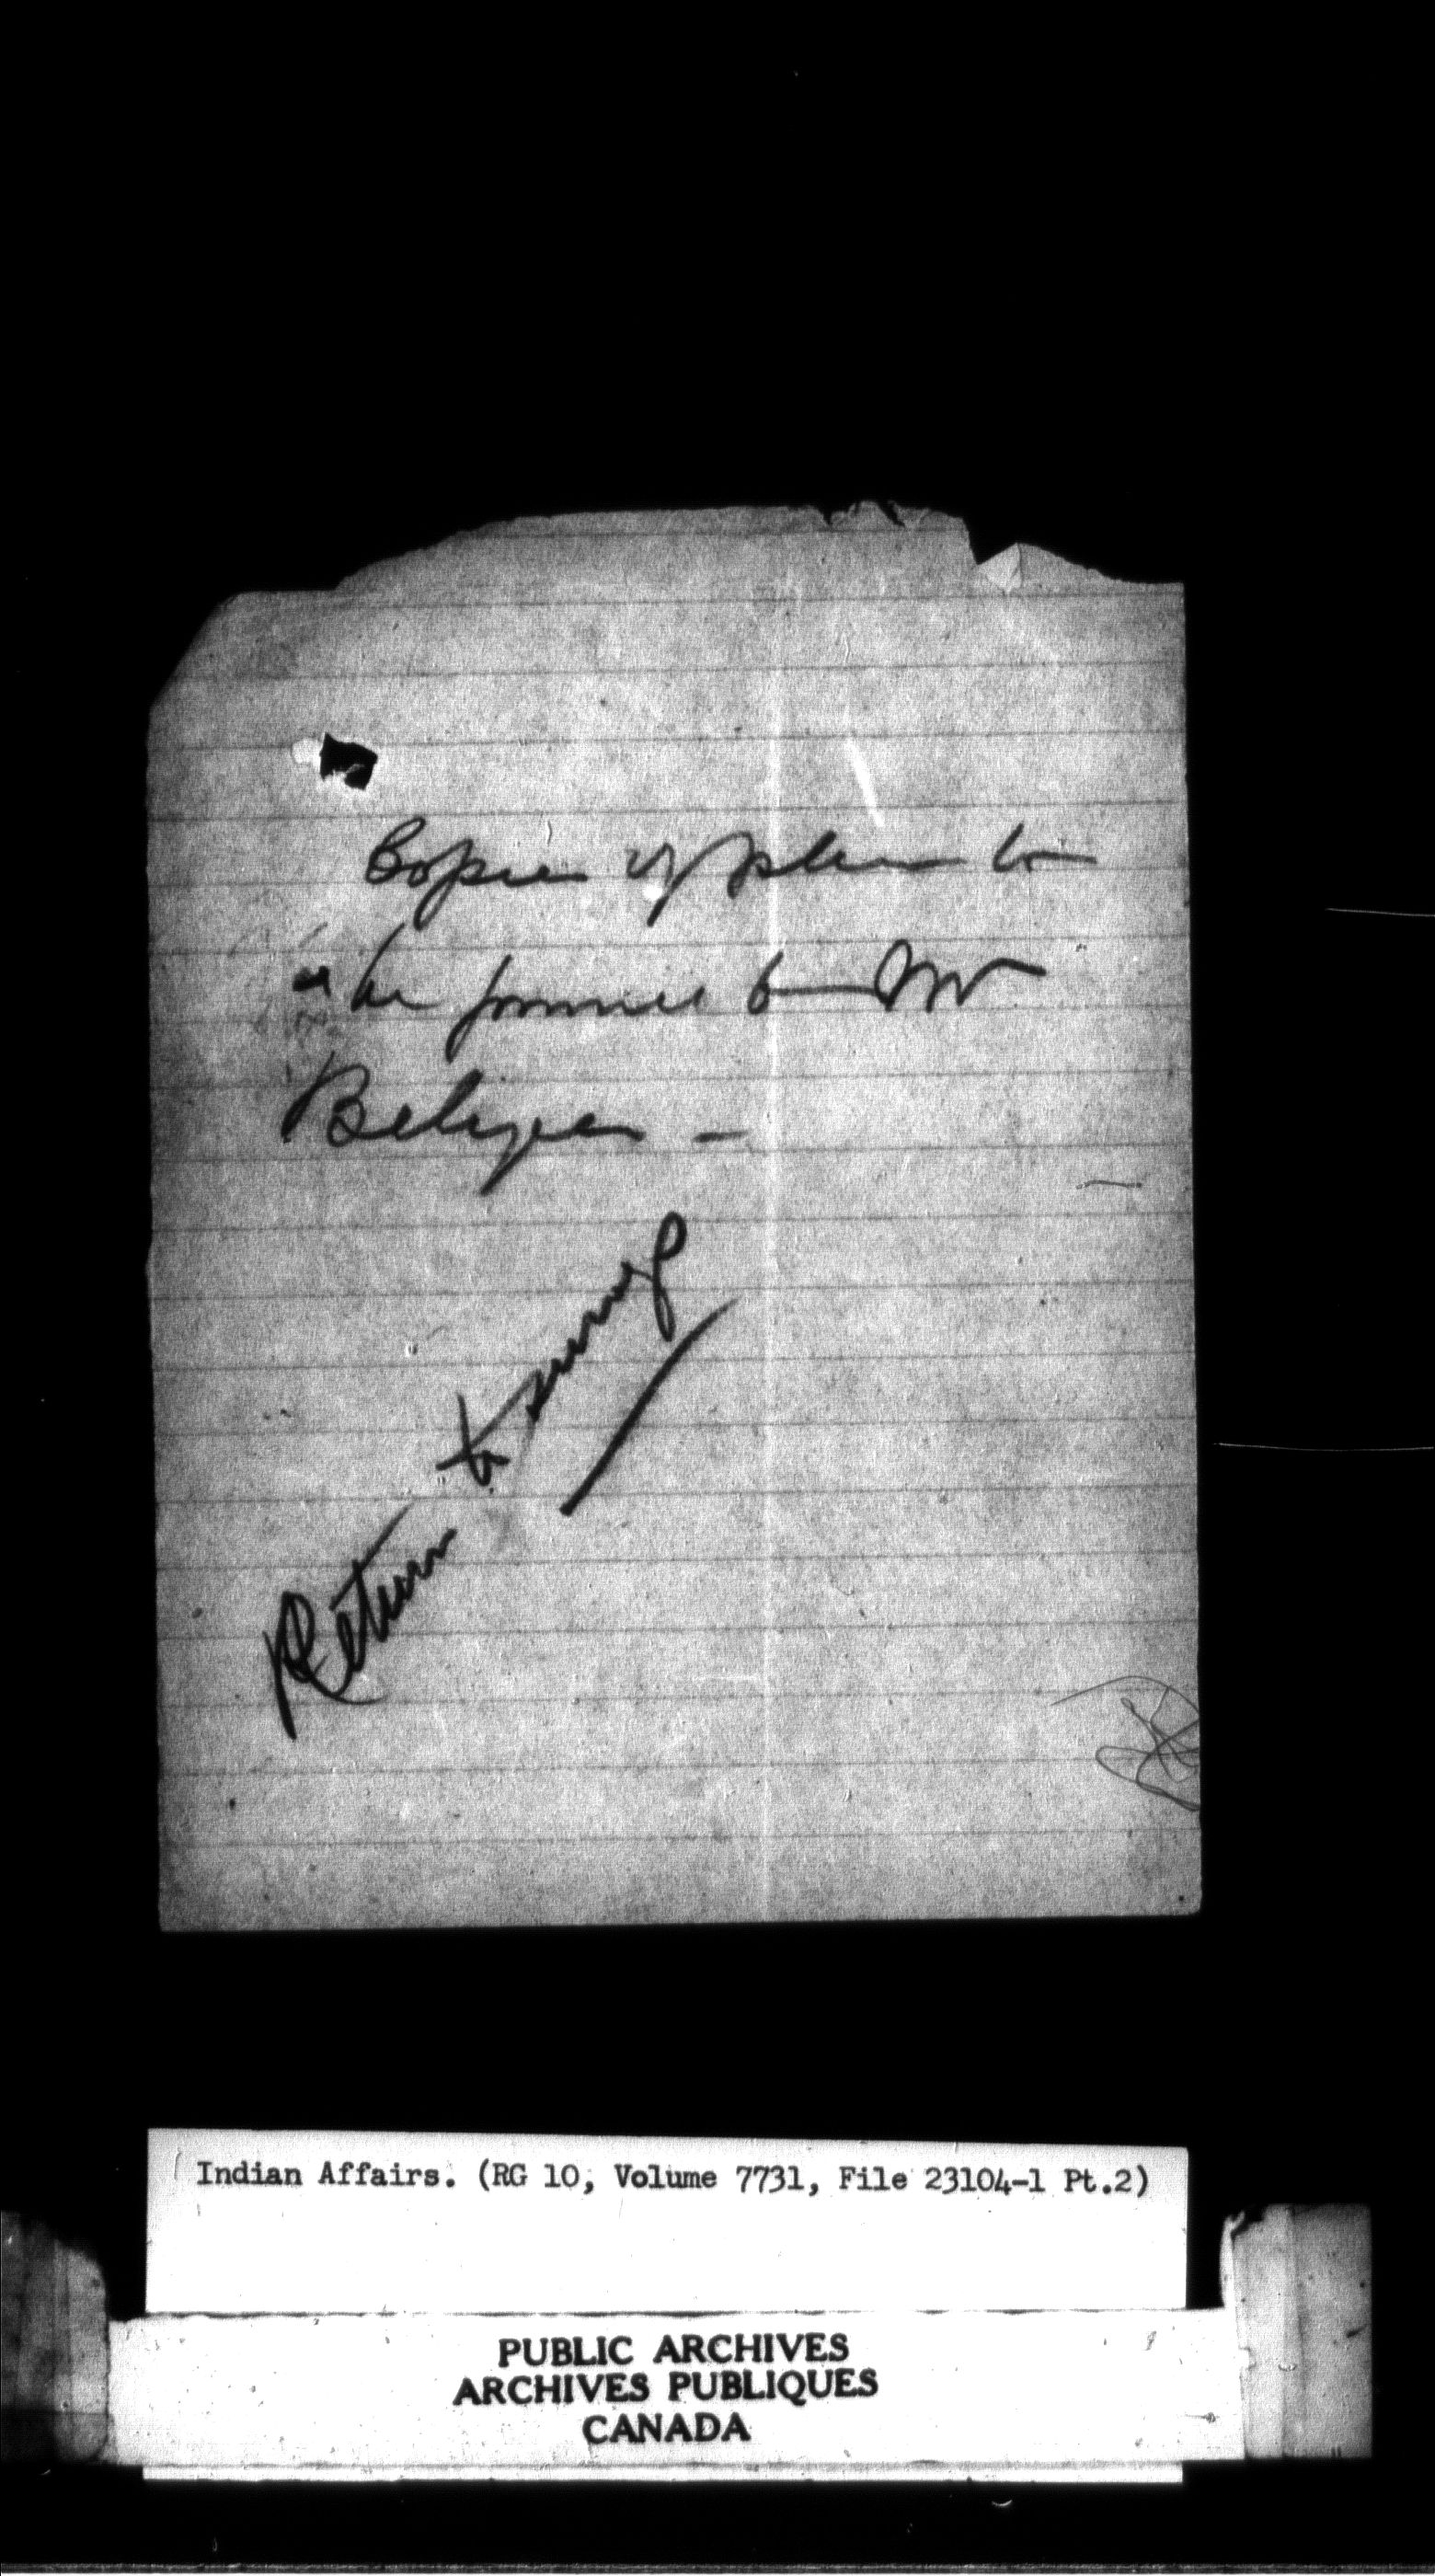 Copies of plan to
be forwarded to Mr
Return to survey
Indian Affairs. (RG 10, Volume 7731, File 23104-1 Pt.2)
PUBLIC ARCHIVES
ARCHIVES PUBLIQUES
CANADA